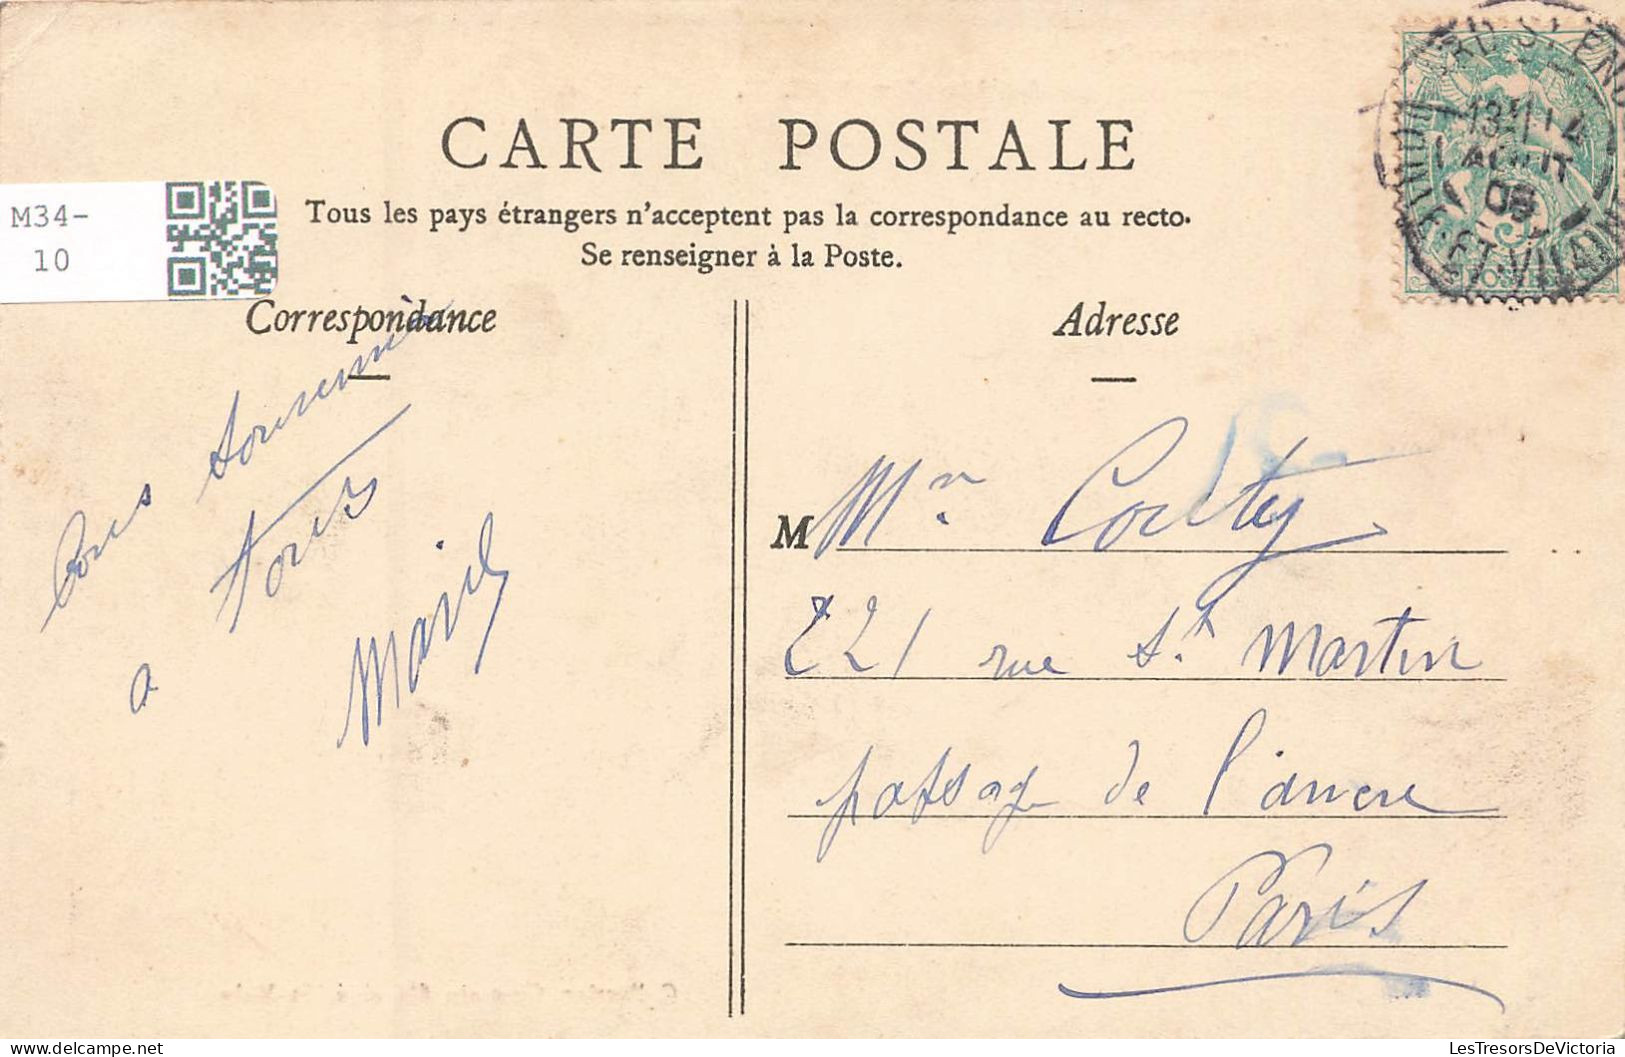 CARTE POSTALE
Tous les pays étrangers n'acceptent pas la correspondance au recto.
Se renseigner à la Poste.
M34-
10
Correspondance
Adresse
Bons Souvenirs
a tous
Marie
M Mr Coultey
221 rue St. Martin
passage de l'ancre
Paris
13
14
AOUT
05
ET-VILAINE
POSTES
LesTresorsDeVictoria
www.delcampe.net